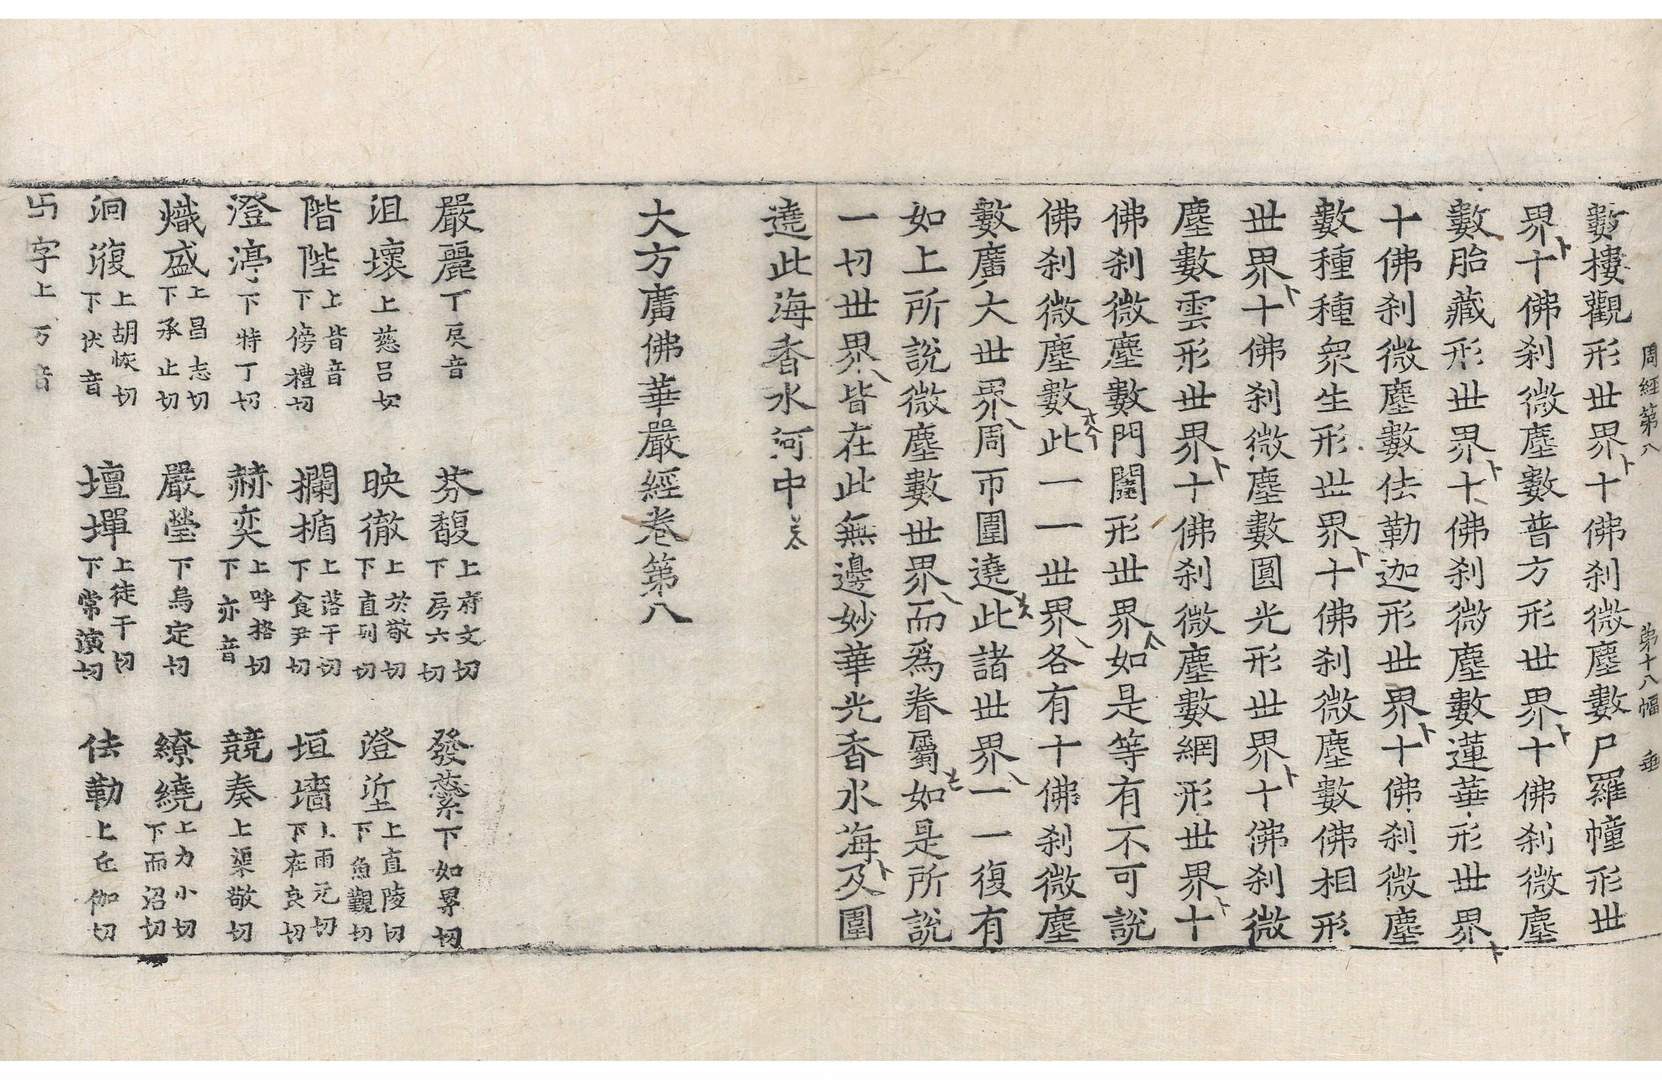 周經第八 第十八幅 垂
數樓觀形世界十佛刹微塵數尸羅幢形世
界十佛刹微塵數普方形世界十佛刹微塵
數胎藏形世界十佛刹微塵數蓮華形世界
十佛刹微塵數佉勒迦形世界十佛刹微塵
數種種衆生形世界十佛刹微塵數佛相形
世界十佛刹微塵數圓光形世界十佛刹微
塵數雲形世界十佛刹微塵數網形世界十
佛刹微塵數門闥形世界如是等有不可說
佛刹微塵數此一一世界各有十佛刹微塵
數廣大世界周帀圍遶此諸世界一一復有
如上所說微塵數世界而爲眷屬如是所說
一切世界皆在此無邊妙華光香水海及圍
遶此海香水河中
大方廣佛華嚴經卷第八
嚴麗 下戾音 芬馥 上府文切下房六切 發縈 下如累切
沮壞 上慈呂切 映徹 上於敬切下直列切 澄垽 上直陵切下魚覲切
階陛 上皆音下傍禮切 攔楯 上落干切下食尹切 垣墻 上雨元切下在良切
澄渟 下特丁切 赫奕 上呼格切下亦音 競奏 上渠敬切
熾盛 上昌志切下承止切 嚴瑩 下烏定切 繚繞 上力小切下而沼切
洄澓 上胡恢切下伏音 壇墠 上徒干切下常演切 佉勒 上丘伽切
字上万音